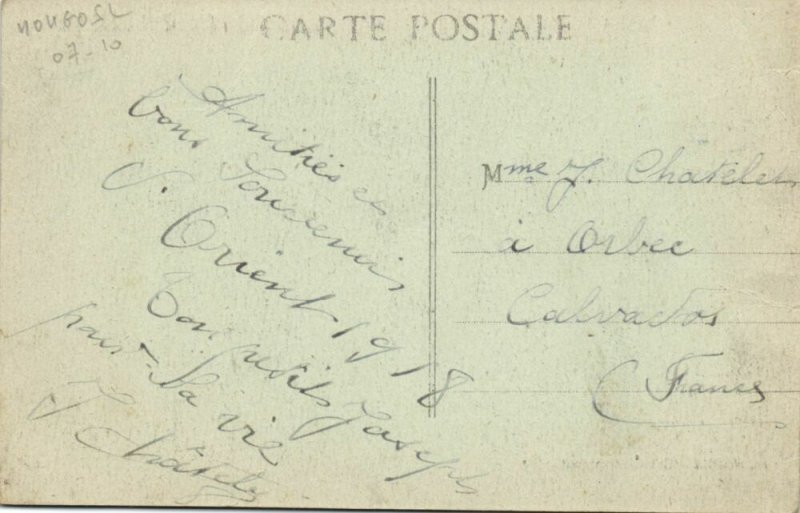 CARTE POSTALE
07-10
Amitiés et
bons Souvenirs
d'Orient 1918
Ton petit Joseph
pour la vie
J Châtelet
Mme J. Châtelet
à Orbec
Calvados
France